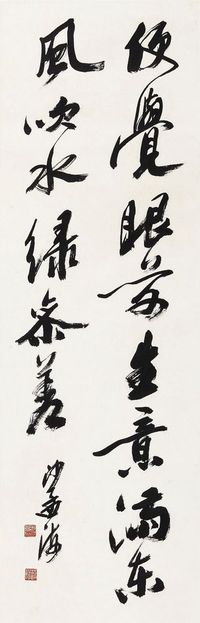 便覺眼前生意滿東
風吹水緑参差
沙孟海